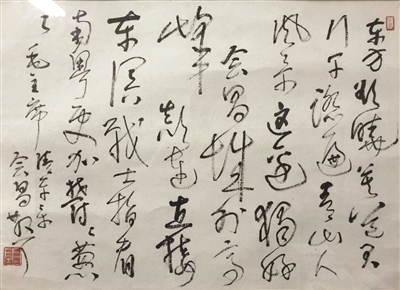 东方欲晓莫道君
行早踏遍青山人
风景这边独好
会昌城外高
峰颠连直接
东溟战士指看
南粤更加郁々葱
々毛主席清平乐
会昌